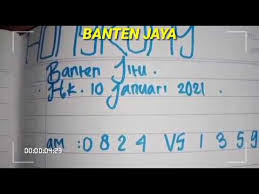 BANTEN JAYA
HONGKONG
Banten Jitu.
Hk. 10 Januari 2021.
am : 0 8 2 4 VS 1 3 5 9
00:00:04:23